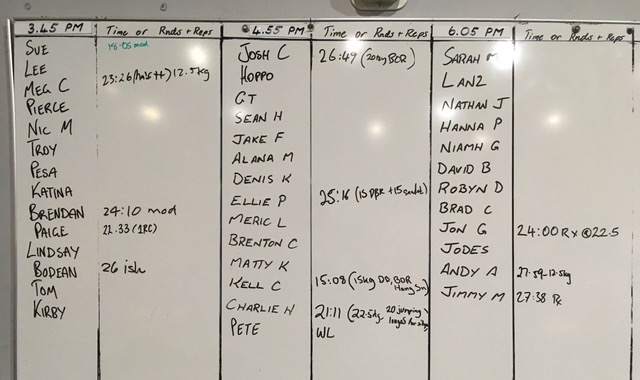 3.45 PM Time or Rnds + Reps
SUE 18:05 mod
LEE
MEG C 23:26 12.5kg
PIERCE
NIC M
TROY
PESA
KATINA
BRENDAN 24:10 mod
PAIGE 22.33
LINDSAY
BODEAN 26 ish
TOM
KIRBY
4.55 PM Time or Rnds + Reps
JOSH C 26:49 (20kg BOR)
HOPPO
GT
SEAN H
JAKE F
ALANA M
DENIS K
ELLIE P 25:16 (15 +15
MERIC L
BRENTON C
MATTY K
KELL C 15:08 (15kg DD, BOR
Hang Sn)
CHARLIE H 21:11 (22.5kg 20 jumping
lunges
PETE WL
6.05 PM Time or Rnds + Reps
SARAH M
LANZ
NATHAN J
HANNA P
NIAMH G
DAVID B
ROBYN D
BRAD C
JON G 24:00 Rx @22.5
JODES
ANDY A 27:59-12.5kg
JIMMY M 27:38 Rx